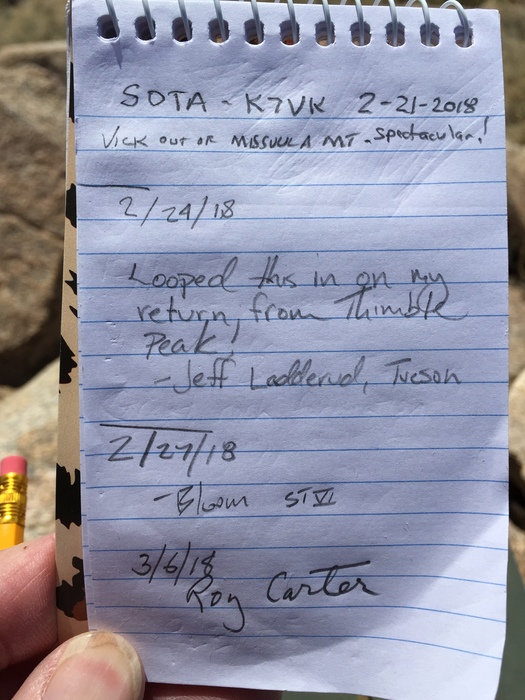 SOTA - K7VK 2-21-2018
VICK OUT OF MISSULLA MT - Spectacular!
2/24/18
Looped this in on my
return, from Thimble
Peak!
- Jeff Ladderud, Tucson
2/27/18
- Bloom ST VI
3/6/18
Roy Carter